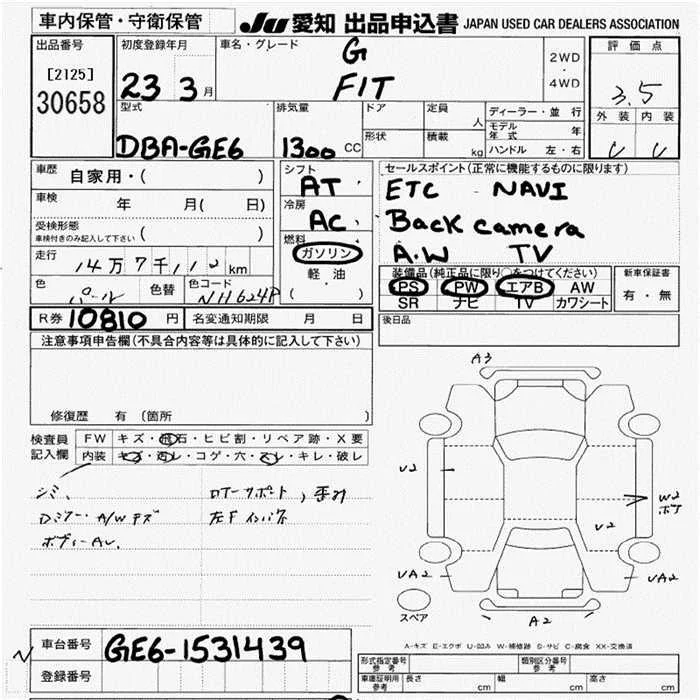 車内保管・守衛保管
JU 愛知 出品申込書 JAPAN USED CAR DEALERS ASSOCIATION
出品番号
[2125]
30658
初度登録年月
23 3月
車名・グレード
G
FIT
2WD
・
4WD
評価点
3.5
外装 内装
型式
DBA-GE6
排気量
1300 CC
ドア
形状
定員 人
積載 kg
ディーラー・並行
モデル年式 年
ハンドル 左・右
車歴
自家用・( )
車検 年 月( 日)
受検形態
車検付きのみ記入して下さい ( )
走行 14万7千112km
色 パール 色替 色コード NH624P
シフト
AT
冷房
AC
燃料
ガソリン
軽油
( )
セールスポイント(正常に機能するものに限ります)
ETC NAVI
Back camera
A.W TV
装備品(純正品に限り○をつけてください)
PS PW エアB AW
SR ナビ TV カワシート
新車保証書
有・無
R券 10810 円 名変通知期限 月 日
後日品
注意事項申告欄(不具合内容等は具体的に記入して下さい)
修復歴 有 (箇所 )
検査員
記入欄
FW キズ・飛石・ヒビ割・リペア跡・X要
内装 キズ・汚レ・コゲ・穴・スレ・キレ・破レ
シミ、
Dミラー・A/Wキズ
ボディーAU.
ロアーサポート、歪み
左Fインパネ
A3
U2
W2
ボア
U2
UA2
UA2
A2
スペア
A-キズ E-エクボ U-凹み W-補修跡 S-サビ C-腐食 XX-交換済
車台番号 GE6-1531439
登録番号
形式指定番号
参考
類別区分番号
参考
車庫証明用
参考
長さ cm 幅 cm 高さ cm